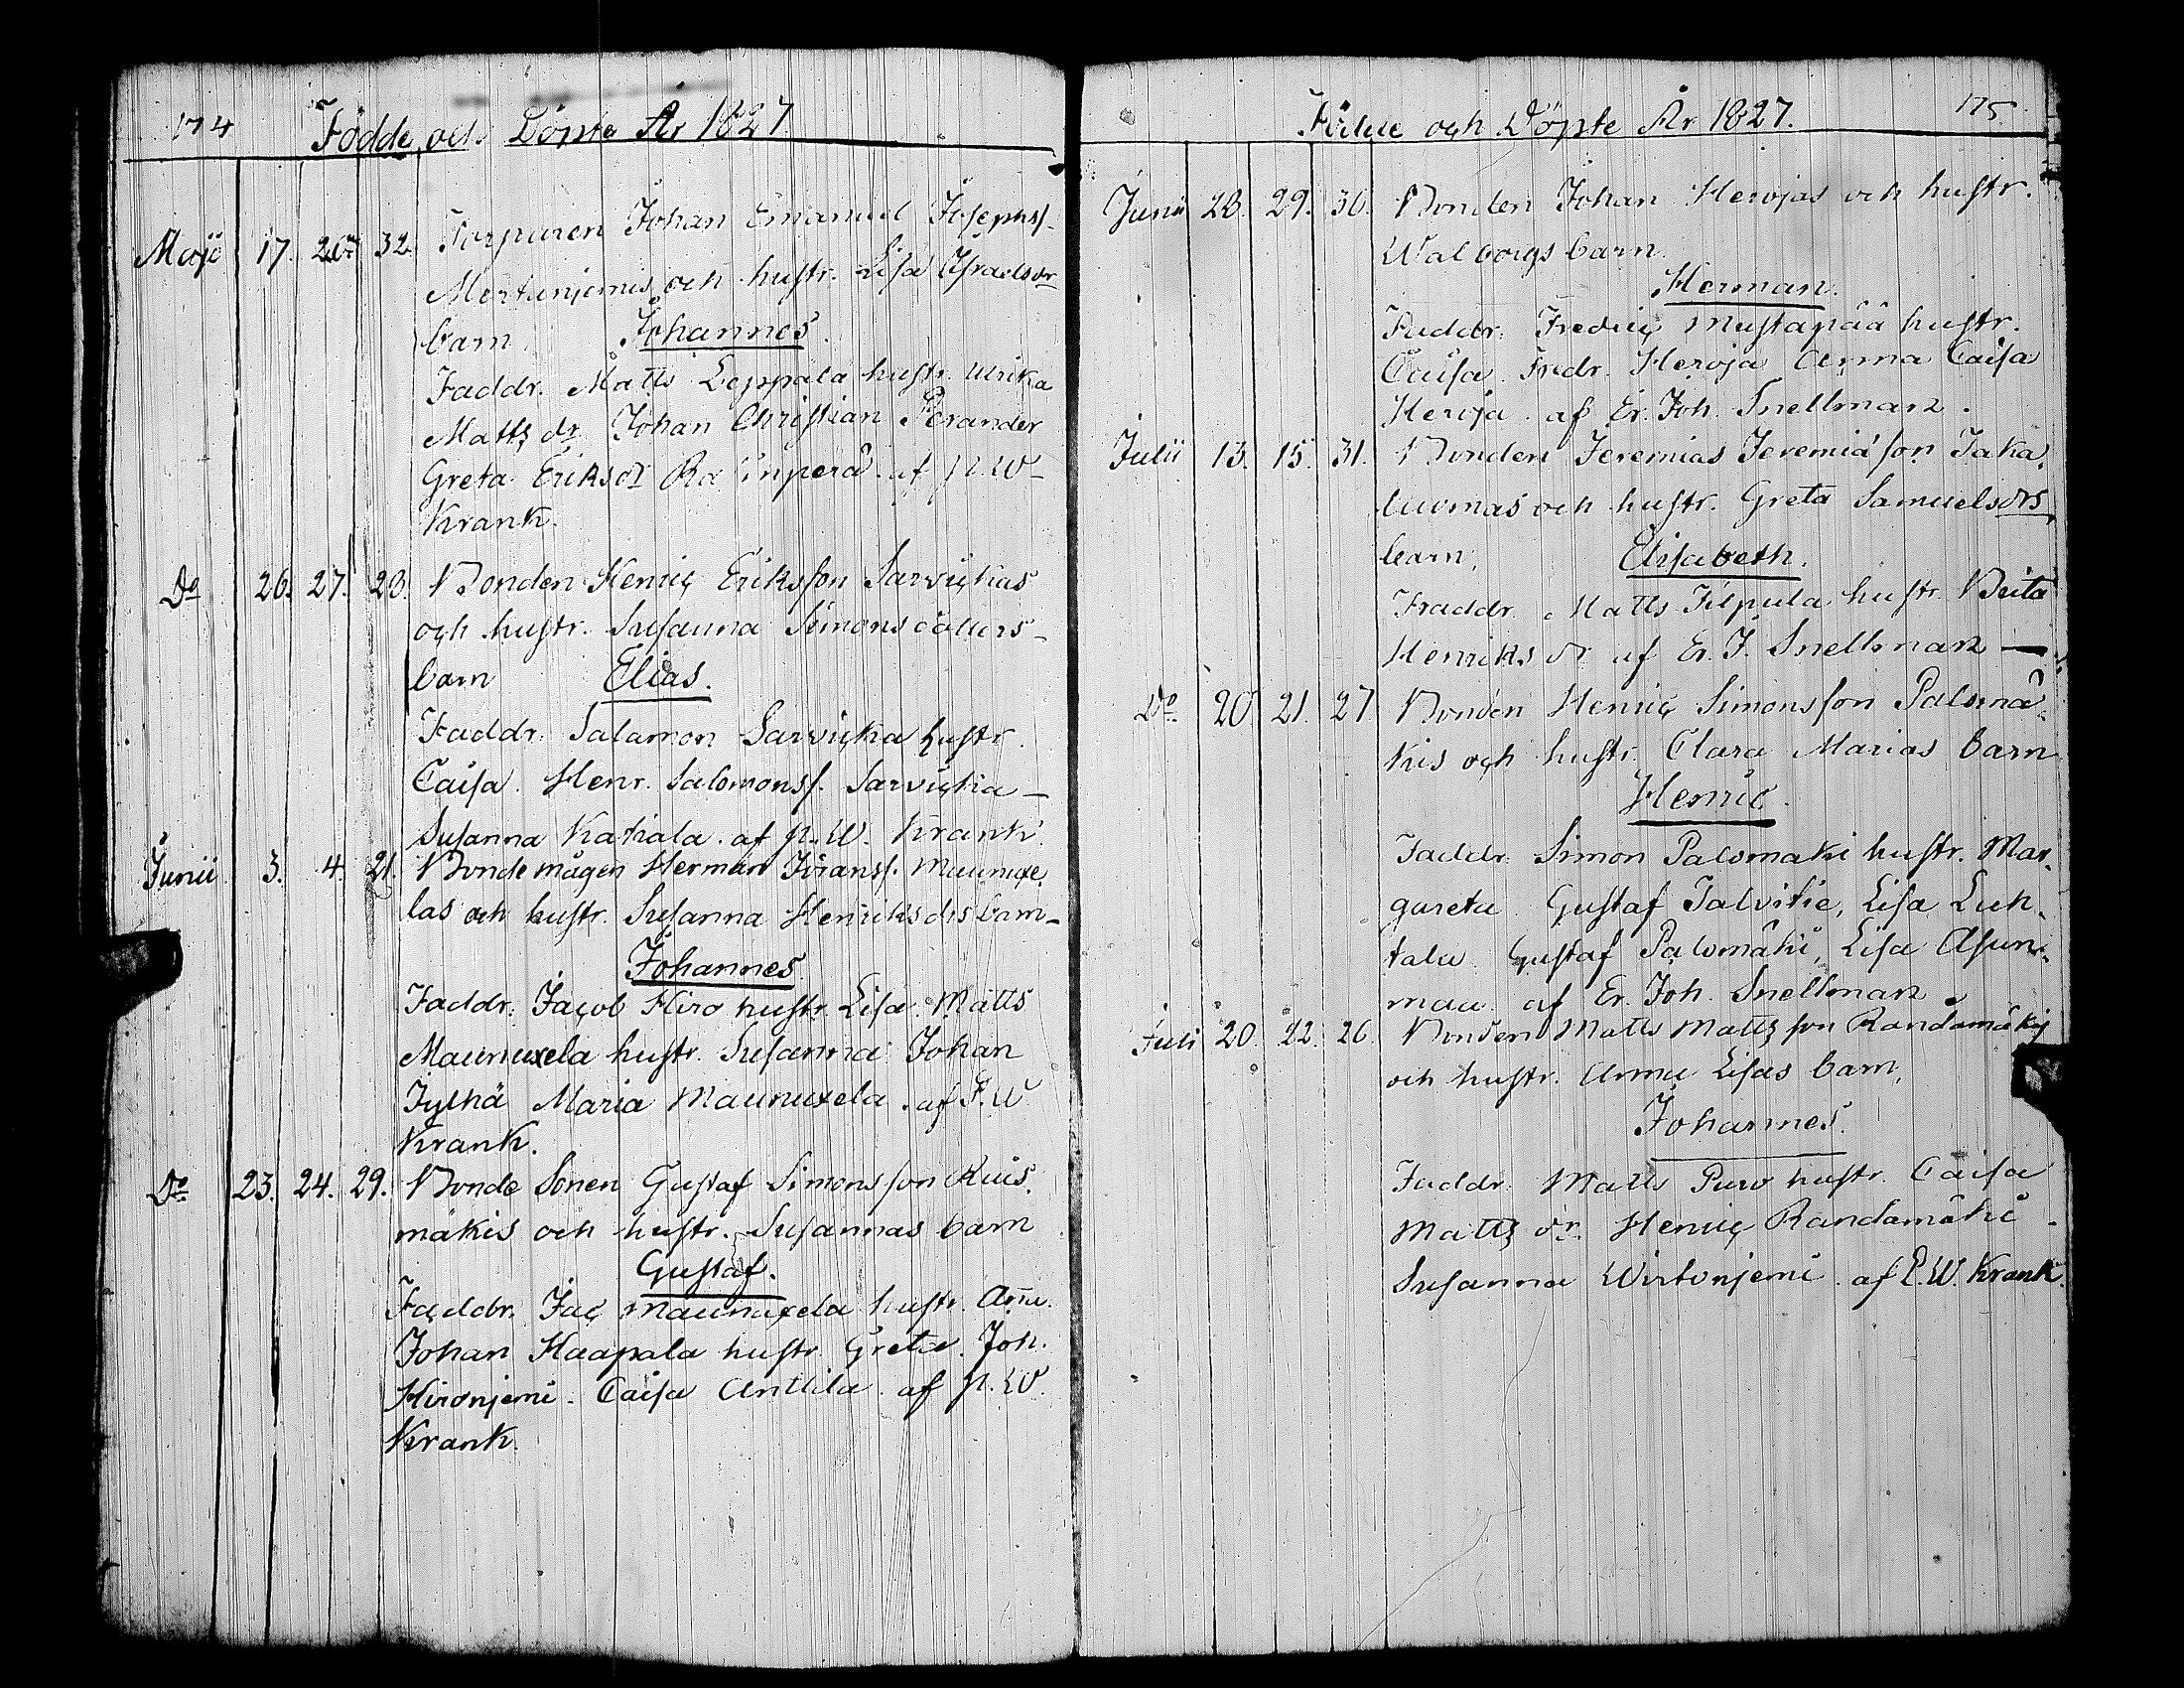 174 Födde och Döpte År 1827
Maji 17. 20 32. Torparen Johan Emanuel Josephss.
Mertunjemis och hustr. Lisa Israelsdr
barn Johannes.
Faddr. Matts Leppala hustr. Ulrika
Matts dr Johan Christian Perander
Greta Eriksdr af P. W.
Krank.
Do 26. 27. 23. Bonden Henric Eriksson Sarvickas
och hustr. Susanna Simonsdotters
barn Elias.
Faddr. Salamon Sarvicka hustr.
Caisa. Henr. Salomonss. Sarvicka
Susanna Katiala. af P. W. Krank.
Junii 3. 4. 21. Bonde mågen Herman Jöranss. Maunuxe
las och hustr. Susanna Henriksdrs barn
Johannes.
Faddr. Jacob Hiro hustr. Lisa. Matts
Maunuxela hustr. Susanna Johan
Jylhä Maria Maunuxela. af P. W
Krank.
Do 23. 24. 29. Bonde Sonen Gustaf Simonsson Ruis
mäkis och hustr. Susannas barn
Gustaf.
Faddr. Jac Maunuxela hustr. Anna.
Johan Haapala hustr. Greta. Joh.
Hironjemi. Caisa Anttila af P. W.
Krank.
Födde och Döpte År 1827. 175
Junii 28. 29. 30. Bonden Johan Herojas och hustr.
Walborgs barn
Herman.
Faddr. Fredric Mustapää hustr.
Caisa. Fredr. Heroja Anna Caisa
Heroja. af Er. Joh. Snellman.
Julii 13. 15. 31. Bonden Jeremias Jeremiasson Jaka
luomas och hustr. Greta Samuelsdrs
barn, Elisabeth.
Faddr. Matts Filpula hustr. Brita
Henriks dr af Er. J. Snellman —
Do 20 21. 27 Bonden Henric Simonsson Palomä
kis och hustr. Clara Marias barn
Henric.
Faddr. Simon Palomäki hustr. Mar
gareta Gustaf Talvitie, Lisa Luh
tala Gustaf Palomäki, Lisa Asun
maa af Er. Joh. Snellman
Juli 20. 22. 26. Bonden Matts Mattsson Randamäkis
och hustr. Anna Lisas barn,
Johannes.
Faddr. Matts Puro hustr. Caisa
Matts dr. Henric Randamäki
Susanna Wirtonjemi. af P. W. Krank.